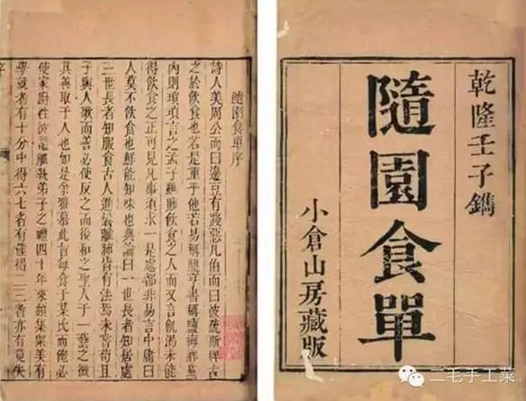 乾隆壬子鐫
隨園食單
小倉山房藏版
隨園食單序
詩人美周公而曰籩豆有踐惡凡伯而曰彼疏斯稗古
之於飲食也若是重乎他若易稱鼎烹書稱鹽梅鄉黨
內則瑣瑣言之孟子雖賤飲食之人而又言飢渴未能
得飲食之正可見凡事須求一是處都非易言中庸曰
人莫不飲食也鮮能知味也典論曰一世長者知居處
三世長者知服食古人進鬐離肺皆有法焉未嘗苟且
子與人歌而善必使反之而後和之聖人于一藝之微
其善取于人也如是余雅慕此旨每食于某氏而飽必
使家廚往彼竈觚執弟子之禮四十年來頗集衆美有
學就者有十分中得六七者有僅得二三者亦有竟失
序
二毛手工菜